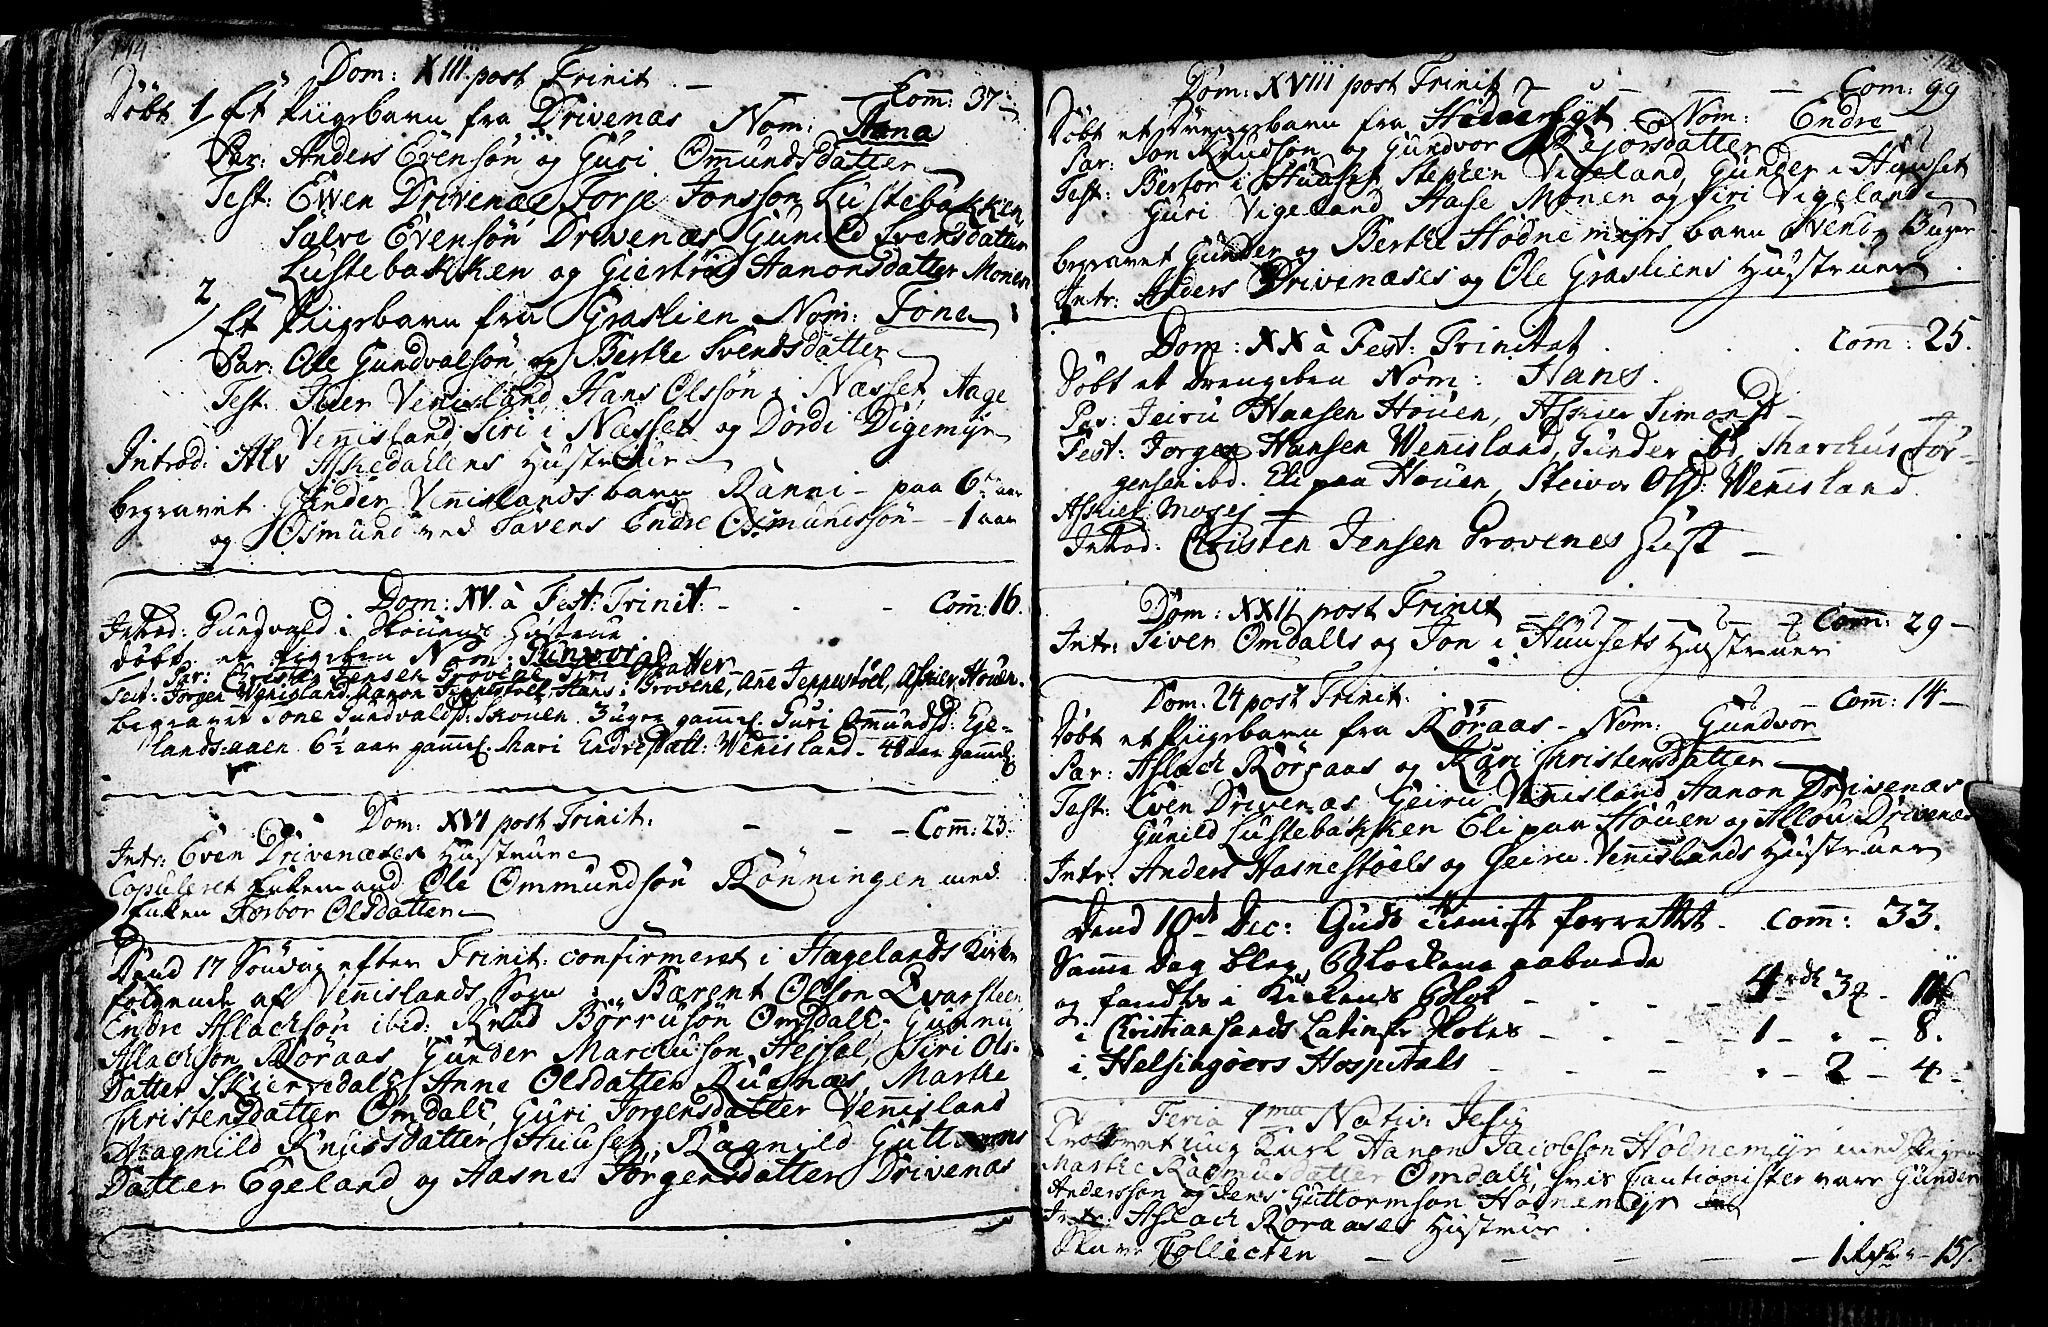 144
Dom: XIII post Trinit — Com: 37
Döbt 1/ Et Piigebarn fra Drivenæs Nom: Aana
Par: Anders Evensön og Guri Omundsdatter
Test: Even Drivenæs Torje Jonsson Lustebakken
Salve Evensön Drivenæs Gunild Svensdatter
Lustebakken og Giertrud Aanonsdatter Monen
2/ Et Piigebarn fra Graslien Nom: Tona
Par: Ole Gundvalsön og Berthe Svendsdatter
Test. Iver Venisland, Hans Olssön i Næsset, Aage
Venisland, Siri i Næsset og Dordi Digemÿr
Introd: Alv Askedahlens Hustrue
begravet Gunder Venislands barn Ranni – paa 6te aar
og Osmund ved Tavens Endre Osmundssön – 1 aar
Dom: XV. à Fest: Trinit: - - - Com: 16.
Introd: Gundvald i Skouens Hustrue
döbt et pigebn Nom: Gunvor
Par: Christen Jensen Grovene Siri datter
Test: Jörgen Venisland, Aanon Jeppestöel, Hans i Grovene, Ane Jeppestöel, Assier Houen.
begravet Tone Gundvaldsd: Skouen. 3 uger gamel. Guri Omundsd: Ege-
landsaaen 6½ aar gamel. Mari Endresdatt: Wenisland – 48 aar gamel.
Dom: XVI post Trinit: - - - Com: 23.
Intr: Even Drivenæses Hustrue
Copuleret Enkemand Ole Ommundsön Rönningen med
Enken Torbor Olsdatter
Dend 17 Söndag efter Trinit: confirmeret i Hagelands Kirke
fölgende af Venislands Sogn: Bærent Olson Qvarsteen
Endre Aslachsön ibid: Knud Börrusön Omsdall: Gunnu
Aslachson Röraas, Gunder Marcuson Heisel, Siri Ols-
datter Skiervedall, Anne Olsdatter Ruenæs, Marthe
Christensdatter Omdall, Guri Jorgensdatter Venisland
Dragnild Knudsdatter Huuset, Ragnild Guttorms
Datter Egeland og Aasne Jörgensdatter Drivenæs
Dom: XVIII post Trinit — Com: 99
Döbt et Drengebarn fra Nom: Endre
Par: Jon Knudsön og Gundvor Rejorsdatter
Test: Bertor i Huuset Stephen Vigeland, Gunder i Huuset
Guri Vigeland Aase Monen og Siri Vigeland
begravet Gunder og Berthe Hödnemÿrs barn Svend, 3 uger
Intr: Anders Drivenæses og Ole Grasliens Hustruer
Dom: XX à Fest: Trinitat . . . Com: 25.
Döbt et drengebn Nom: Hans.
Par: Jeiru Hansen Houen, Assier Simonsd
Test: Jorgen Hansen Wenisland, Gunder ibd, Marchus Jör-
gensen ibd. Eli paa Houen, Steivor Olsd: Wenisland.
Introd: Christen Jensen Grovenes Hust
Dom: XXII post Trinit — Com: 29 –
Intr: Siver Omdalls og Jon i Huusets Hustruer
Dom: 24 post Trinit: — Com: 14 –
Döbt et Piigebarn fra Röraas – Nom: Gundvor
Par: Aslach Röraas og Kari Christensdatter
Test: Even Drivenæs Geiru Venisland Aanon Drivenæs
Gunild Lustebakken Eli paa Houen og Allou Drivenæs
Intr: Anders Hasnestöels og Geiru Venislands Hustruer
Dend 10de Dec: Guds tieniste forrettet – Com: 33.
Samme Dag blev Blockene aabnede
og fandtes i Kirkens Blok - - - 4 rdr 3 – 11
i Christiansands Latinske Skoles - - - 1 – – 8.
i Helsingöers Hospitals - - - – 2 – 4
Feria 1ma Nativ: Jesu
Trolovet ung Karl Aanon Jacobson Hödnemÿr med Pigen
Marthe Rasmusdatter Omdall, hvis Cautionister vare Gunder
Andersson og Jens Guttormson Hödnemÿr
Intr: Aslach Röraases Hustrue
Collecten — — — 15